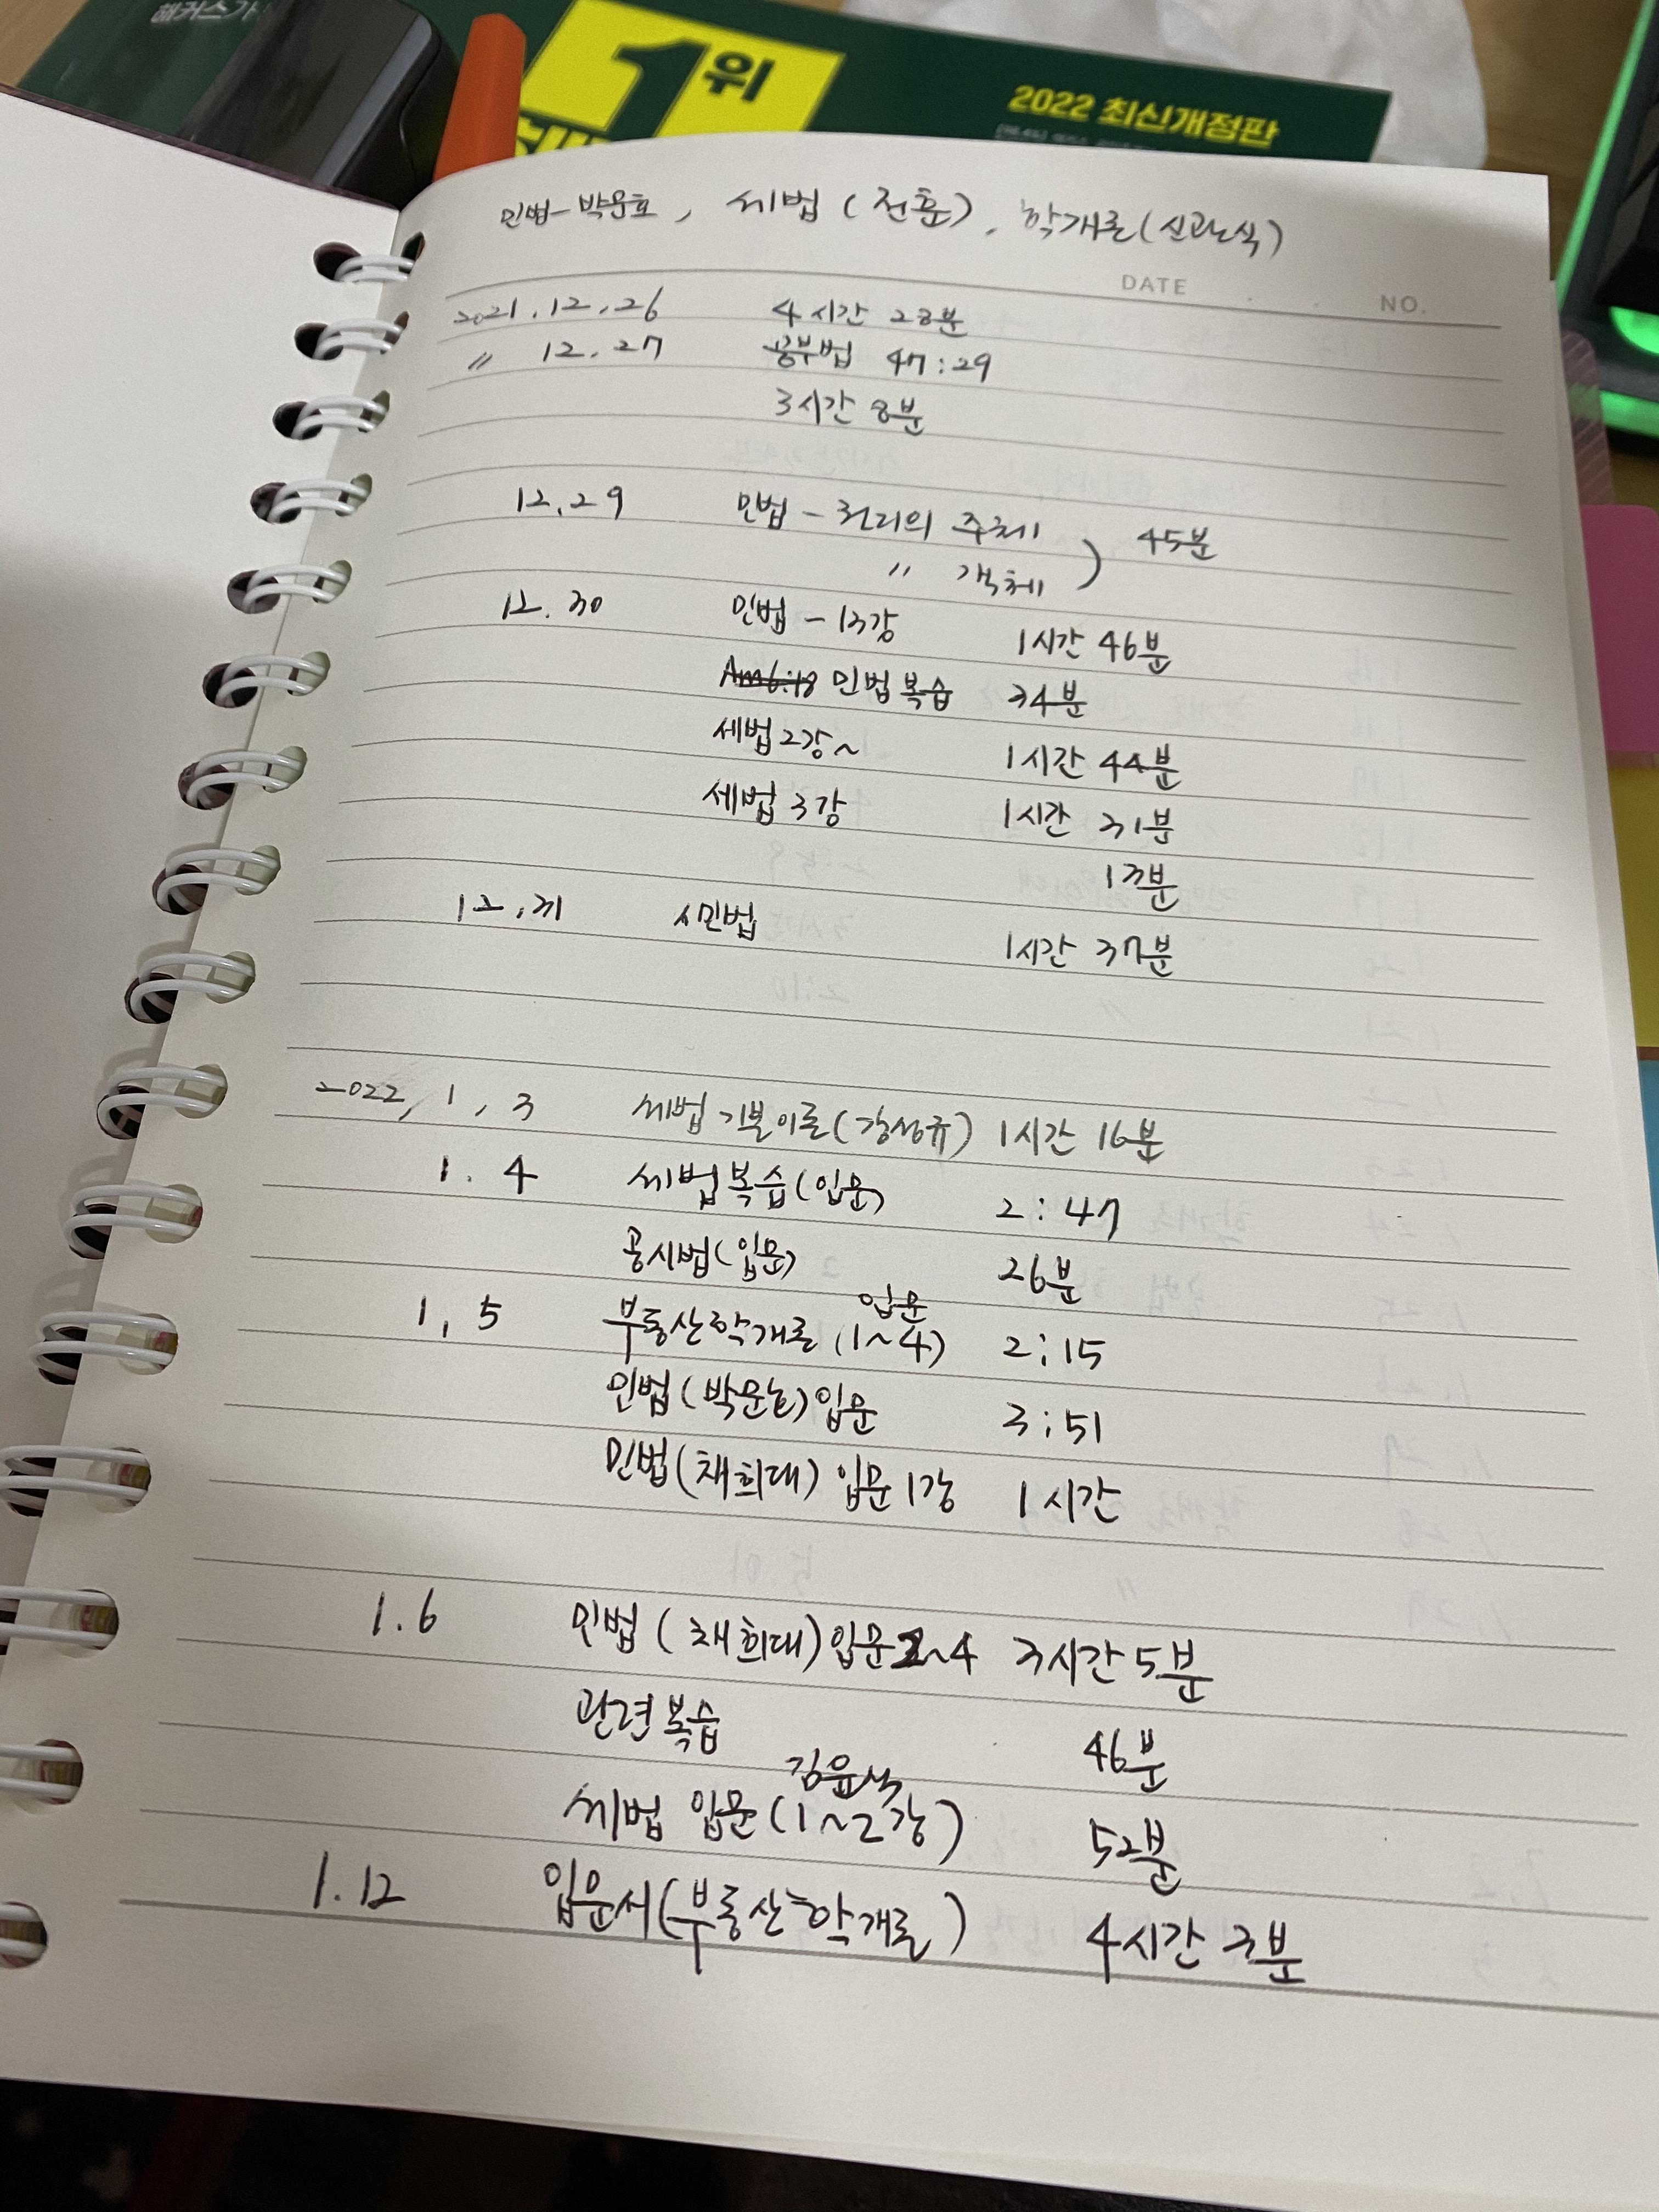 해커스
1위
2022 최신개정판
민법-박문호, 세법(전훈), 학개론(신관식)
DATE . . NO.
2021.12.26 4시간 28분
〃 12.27 공부법 47:29
3시간 8분
12.29 민법-권리의 주체 ) 45분
〃 객체
12.30 민법-13강 1시간 46분
민법복습 34분
세법2강~ 1시간 44분
세법3강 1시간 31분
13분
12.31 민법 1시간 37분
2022, 1, 3 세법기본이론(강성규) 1시간 16분
1. 4 세법복습(입문) 2:47
공시법(입문) 26분
입문
1, 5 부동산학개론(1~4) 2:15
민법(박문호)입문 3:51
민법(채희대)입문1강 1시간
1.6 민법(채희대)입문2~4 3시간 5분
관련복습 46분
김윤석
세법 입문(1~2강) 52분
1.12 입문서(부동산학개론) 4시간 3분